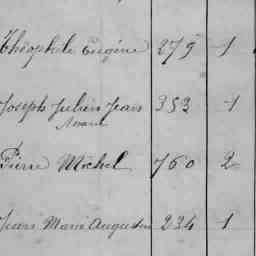 Théophile Eugène 279 1
Joseph Julien Jean 353 1
Marie
Pierre Michel 760 2
Jean Marie Augustin 234 1